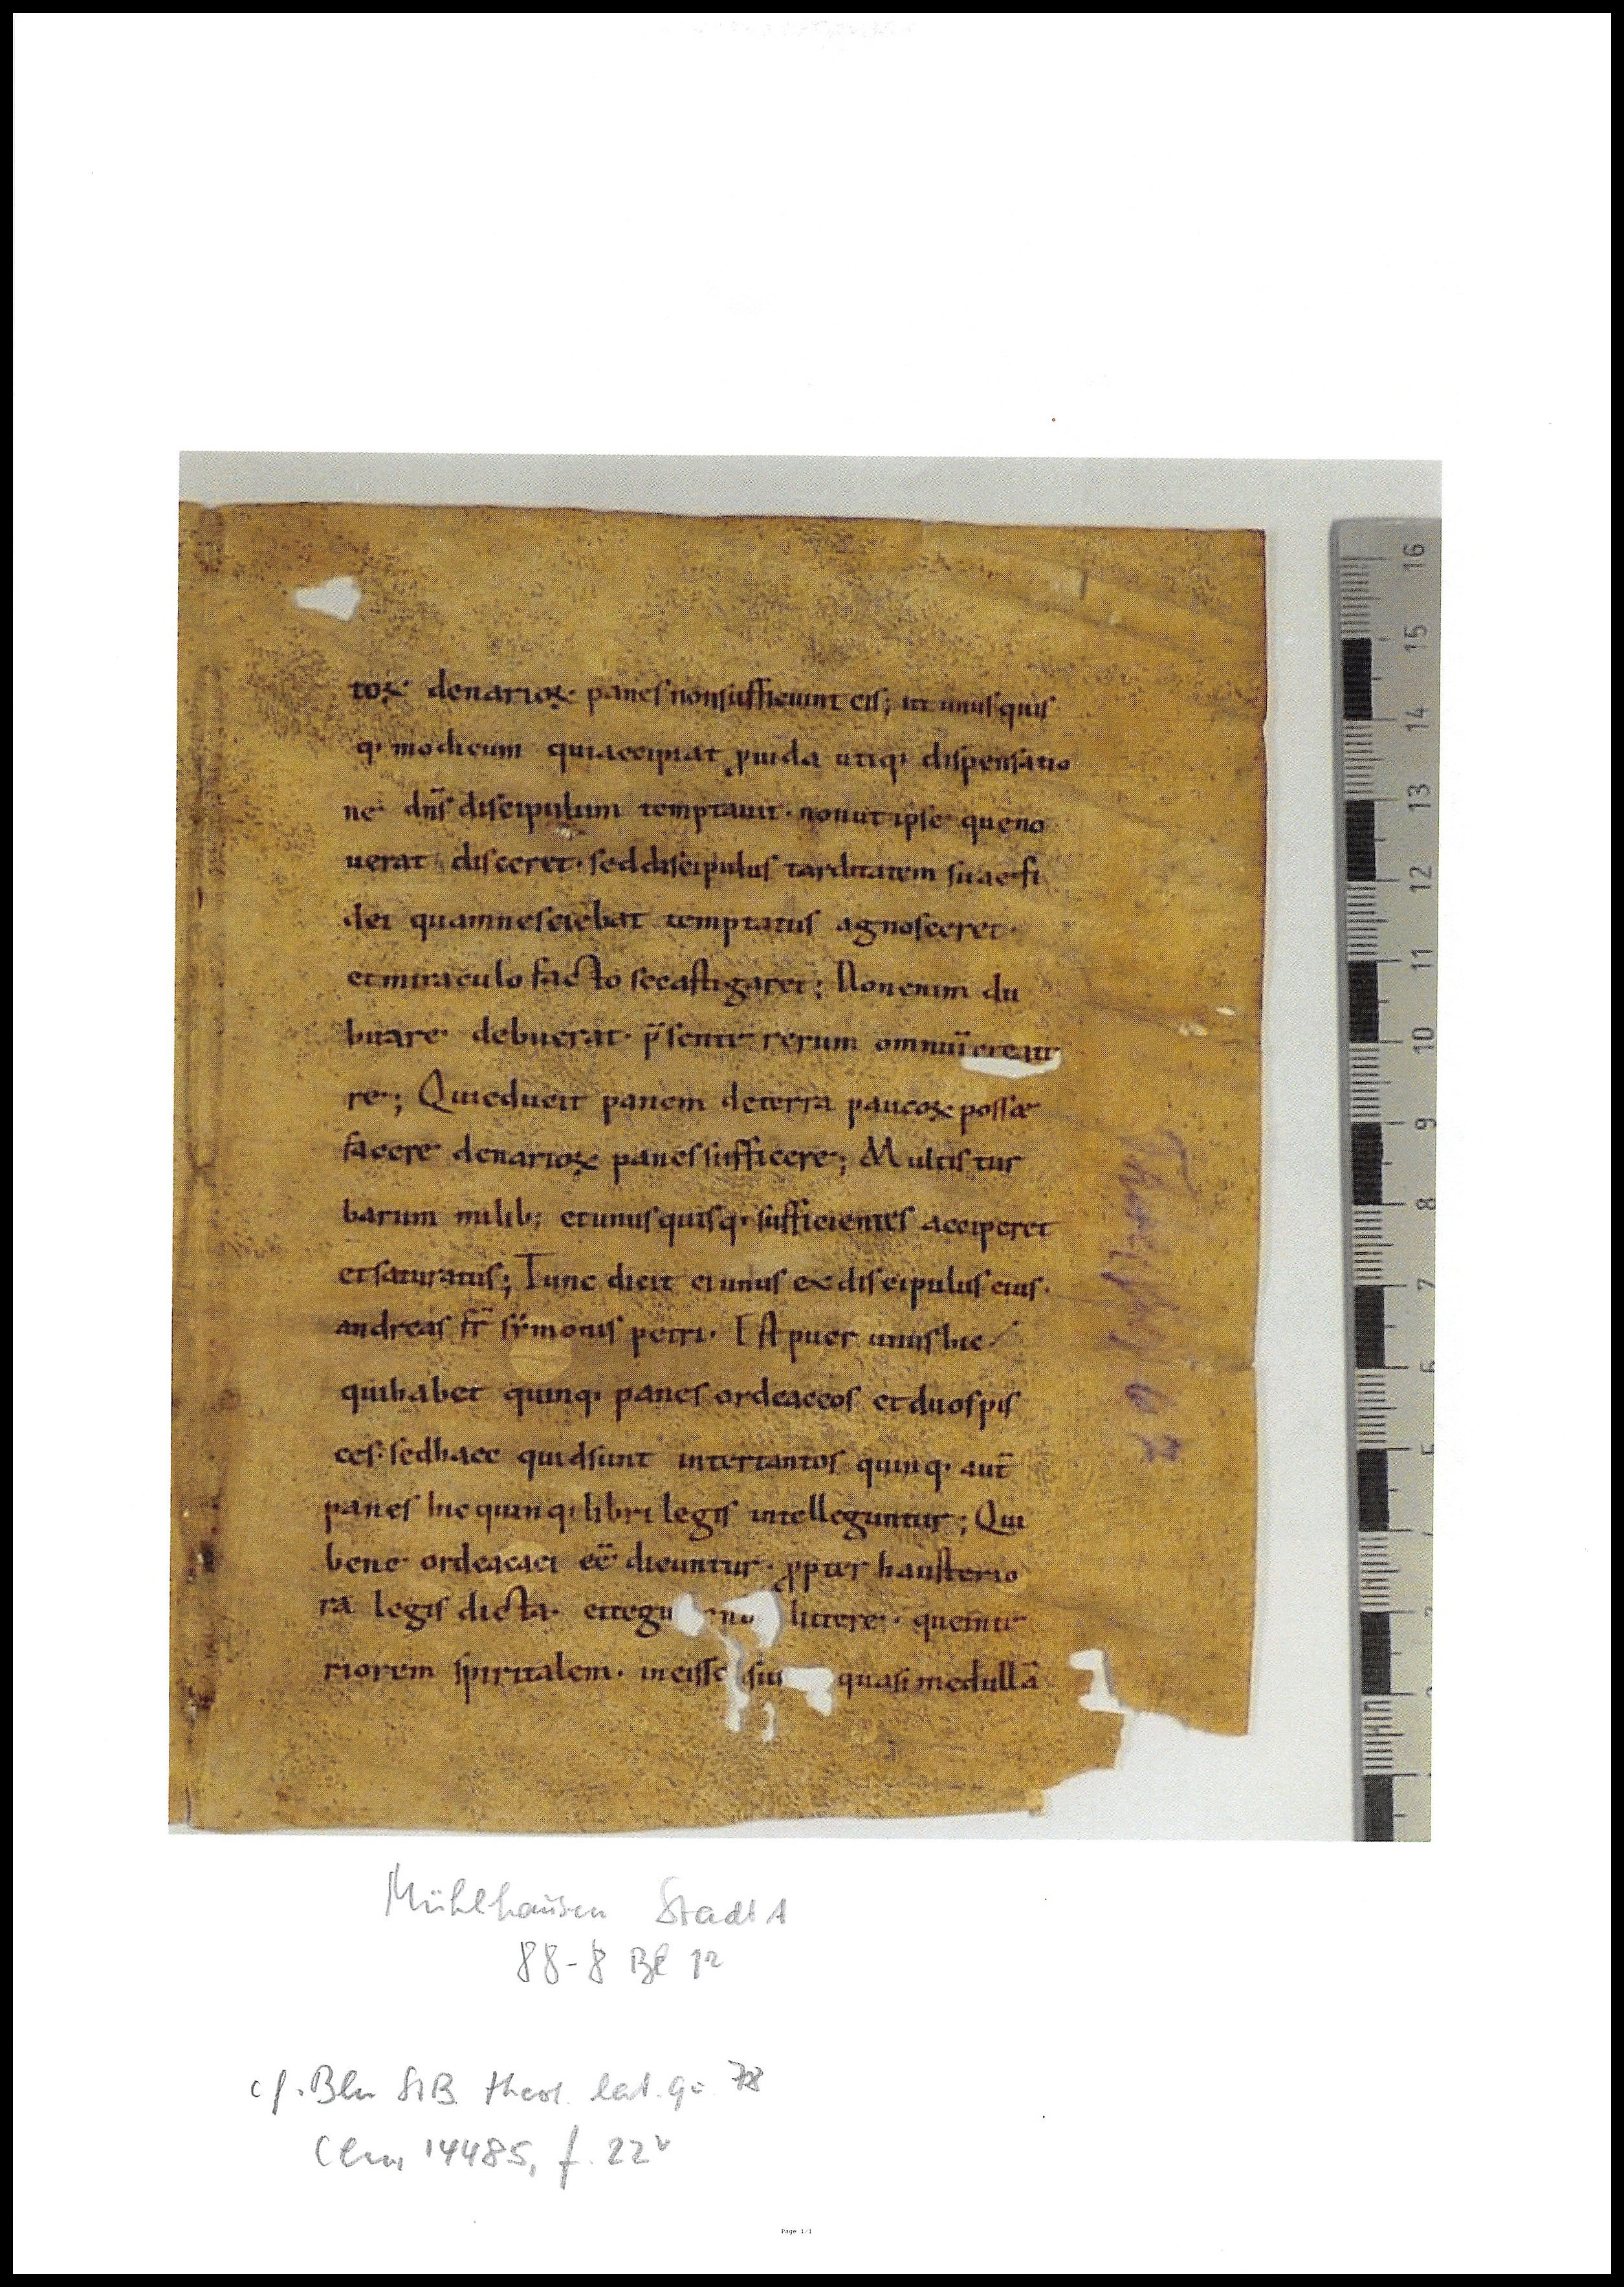 toꝝ denarioꝝ panes non sufficiunt eis; ut unus quis
q; modicum qui accipiat ꝓuida utiq; dispensatio
ne dn̄s discipulum temptauit · non ut ipse que no
uerat disceret · sed discipulus tarditatem suae fi
dei quam nesciebat temptatus agnosceret ·
et miraculo facto se castigaret; Non enim du
bitare debuerat · p̄sente rerum omniū creato
re; Qui educit panem de terra paucoꝝ posse
facere denarioꝝ panes sufficere; Multis tur
barum milib; et unus quisq; sufficientes acciperet
et saturatus; Tunc dicit ei unus ex discipulus eius ·
andreas fr̄ symonis petri · Est puer unus hic
qui habet quinq; panes ordeaceos et duos pis
ces · sed haec quid sunt inter tantos quinq; aut̄
panes hic quinq; libri legis intelleguntur; Qui
bene ordeacaei ee̅ dicuntur · ꝓpter hausterio
ra legis dicta · et tegu litterę · que inte
riorem spiritalem · in eisse quasi medullā
Mühlhausen StadtA
88-8 Bl 1r
cf. Bln StB theol. lat. qu. 78
Clm 14485, f. 22v
Page 1/1
16
15
14
13
12
11
10
9
8
7